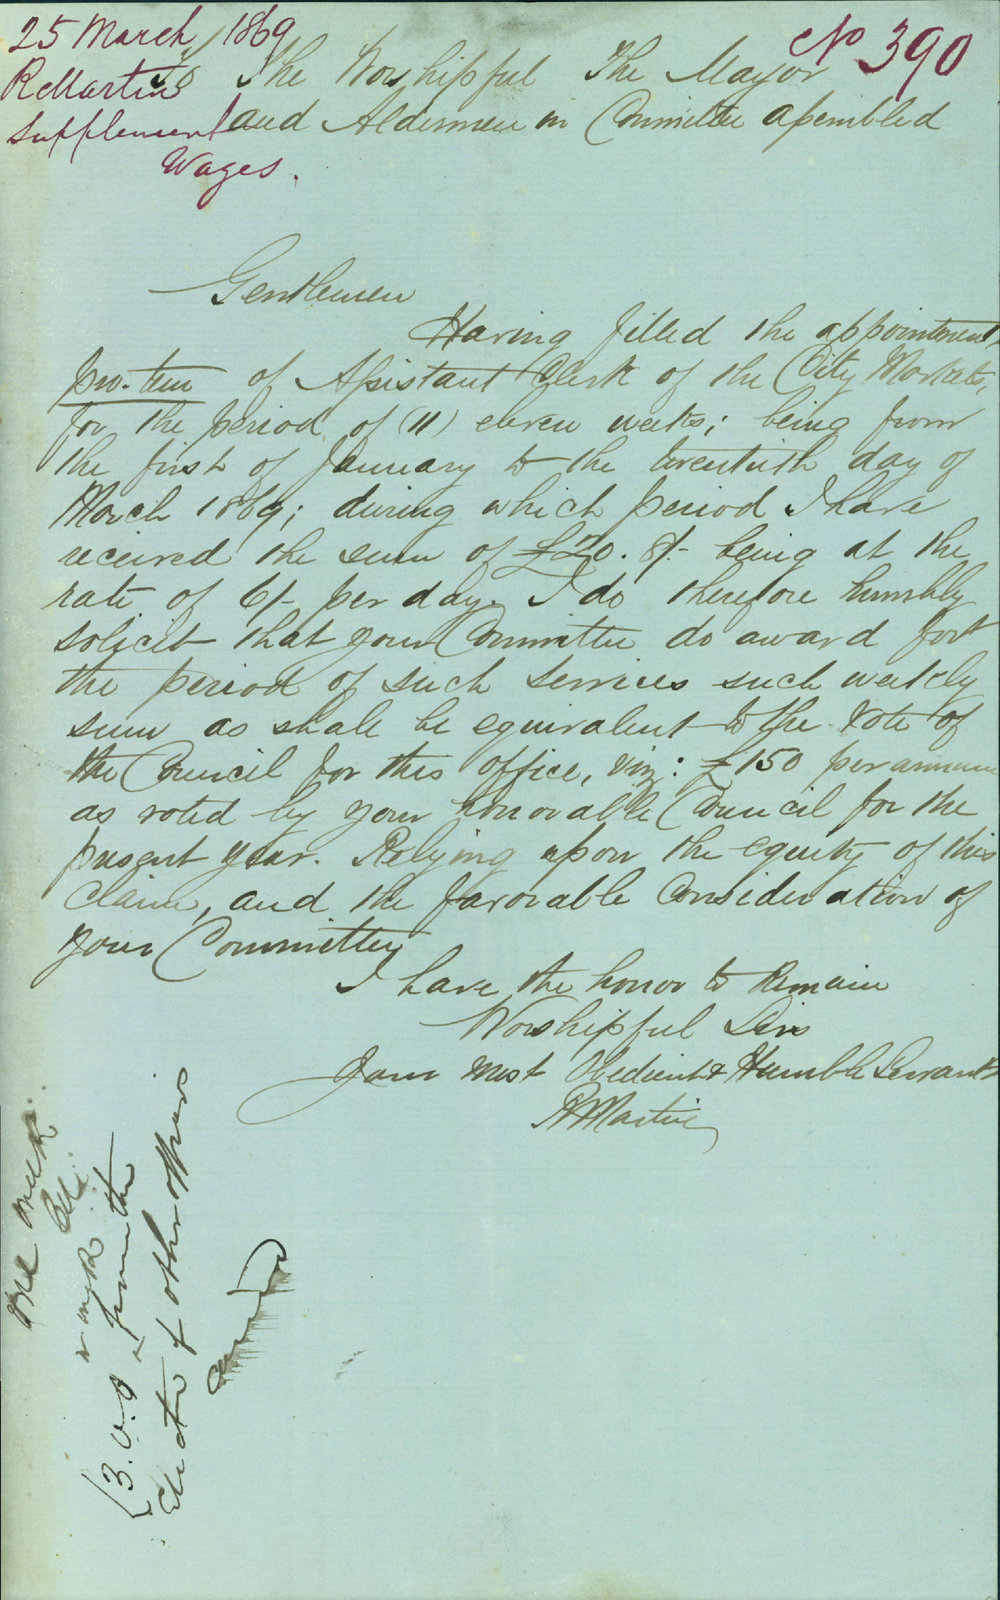 25 March 1869
No 390
R Martin
Supplement
Wages.
To The Worshipful The Mayor
and Aldermen in Committee assembled
Gentlemen
Having filled the appointment
pro. tem of Assistant Clerk of the City Markets,
for the period of (11) eleven weeks; being from
the first of January to the twentieth day of
March 1869; during which period I have
received the sum of £20. 8/- being at the
rate of 6/- per day. I do therefore humbly
solicit that your Committee do award for
the period of such services such weekly
sum as shall be equivalent to the vote of
the Council for this office, viz: £150 per annum
as voted by your honorable Council for the
present year. Relying upon the equity of this
claim, and the favorable Consideration of
your Committee
I have the honor to Remain
Worshipful Sirs
Your most Obedient & Humble Servant
R Martin
One week
£3.0.0
& other offices